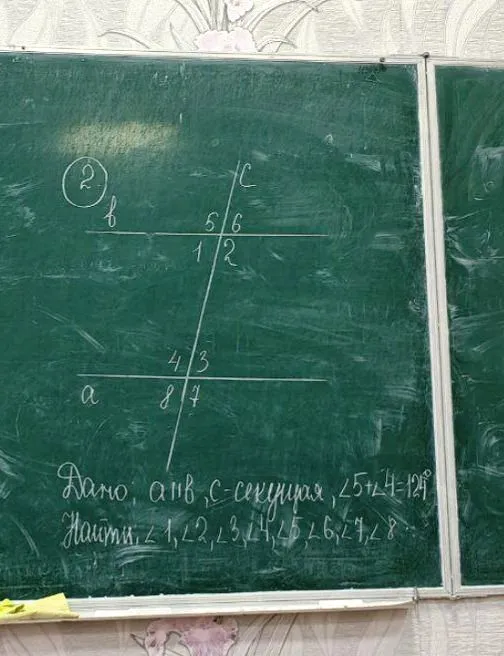 2
c
b
5 6
1 2
4 3
a
8 7
Дано: a||b, c-секущая, ∠5+∠4=124°
Найти, ∠1, ∠2, ∠3, ∠4, ∠5, ∠6, ∠7, ∠8